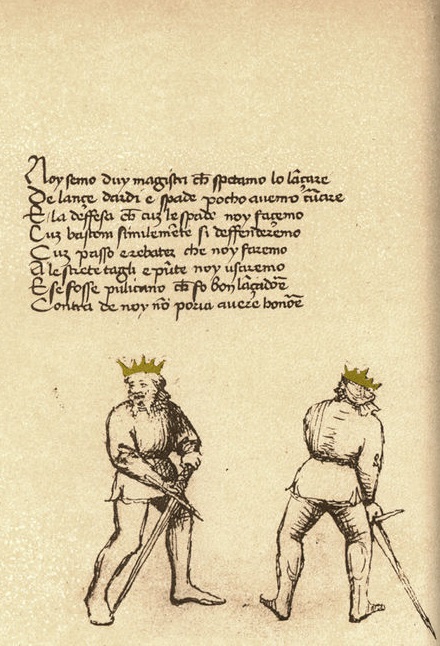 Noy semo duy magistri ch̄ spetamo lo lāçare
De lançe dardi e spade pocho auemo cūrare
E la deffesa ch̄ cuʒ le spade noy façemo
Cuʒ bastoni similemēte si deffenderemo
Cuʒ passo e rebater che noy faremo
A le strete tagli e pūte noy usaremo
E se fosse pulicano ch̄ fo bon lāçadoē
Contra de noy nō poria auere honoē